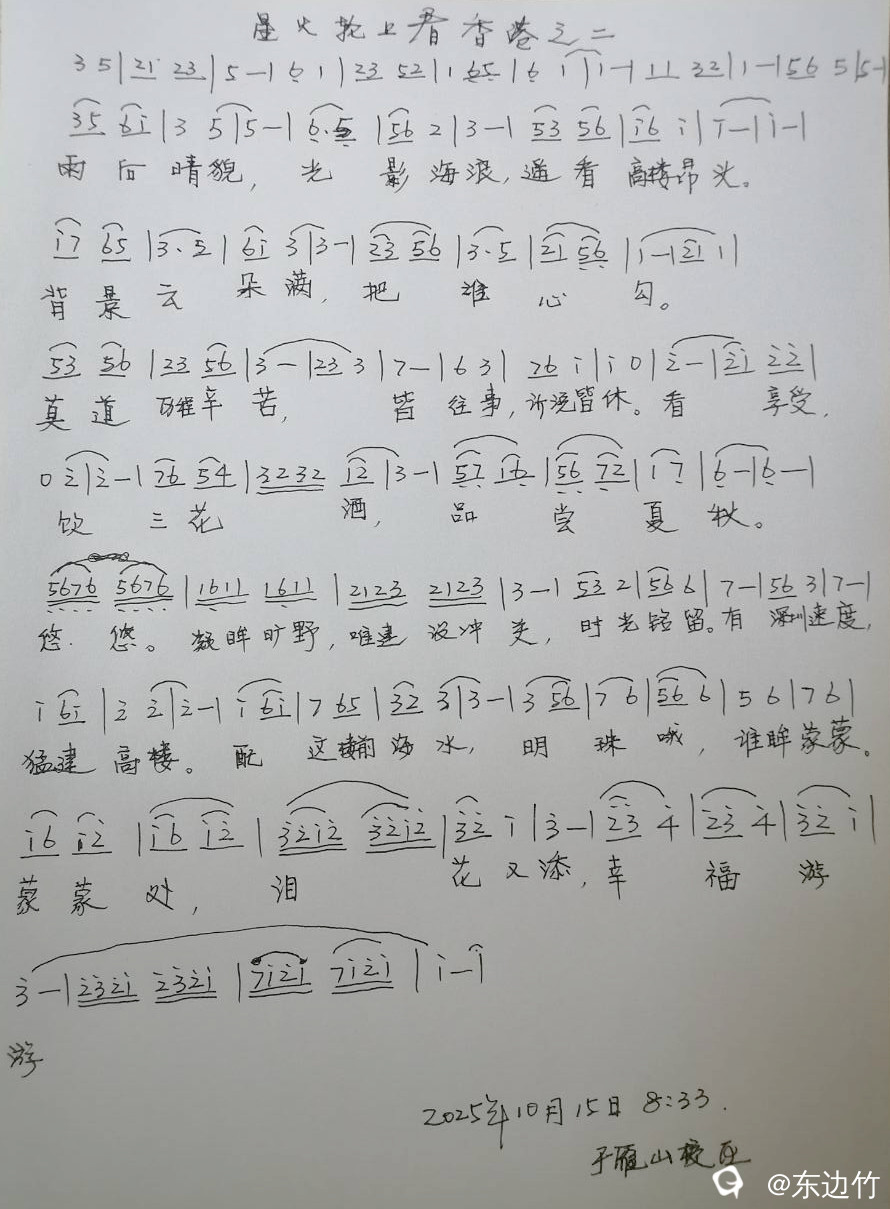 星火轮上看香港之二
3 5 | 21 23 | 5 - | 6 1 | 23 52 | 1 65 | 6 i | i - | 11 22 | 1 - | 56 5 | 5 -
35 6i | 3 5 | 5 - | 6·5 | 56 2 | 3 - | 53 56 | i6 i | i - | i - |
雨后晴貌,光影海浪,遥看高楼昂头。
i7 65 | 3·5 | 6i 3 | 3 - | 23 56 | 3·5 | 21 56 | i - | 21 1 |
背景云朵满,把谁心勾。
53 56 | 23 56 | 3 - | 23 3 | 7 - | 6 3 | 76 i | i 0 | 2 - | 2i 22 |
莫道 辛苦,皆往事,所说皆休。看享受,
0 2 | 2 - | 76 54 | 3232 12 | 3 - | 57 16 | 56 72 | 17 | 6 - | 6 - |
饮三花酒,品尝夏秋。
5676 5676 | 1611 1611 | 2123 2123 | 3 - | 53 2 | 56 6 | 7 - | 56 3 | 7 - |
悠悠。凝眸旷野,唯建设冲类,时光铭留。有深圳速度,
i 6i | 2 2 | 2 - | i 6i | 7 65 | 32 3 | 3 - | 3 56 | 7 6 | 56 6 | 5 6 | 7 6 |
猛建高楼。配这楼前海水,明珠哦,谁眸蒙蒙。
i6 i2 | i6 i2 | 32i2 32i2 | 32 i | 3 - | 23 4 | 23 4 | 32 i |
蒙蒙处,泪花又添,幸福游
3 - | 232i 232i | 7i2i 7i2i | i - i
游
2025年10月15日 8:33.
于雁山校区
@东边竹